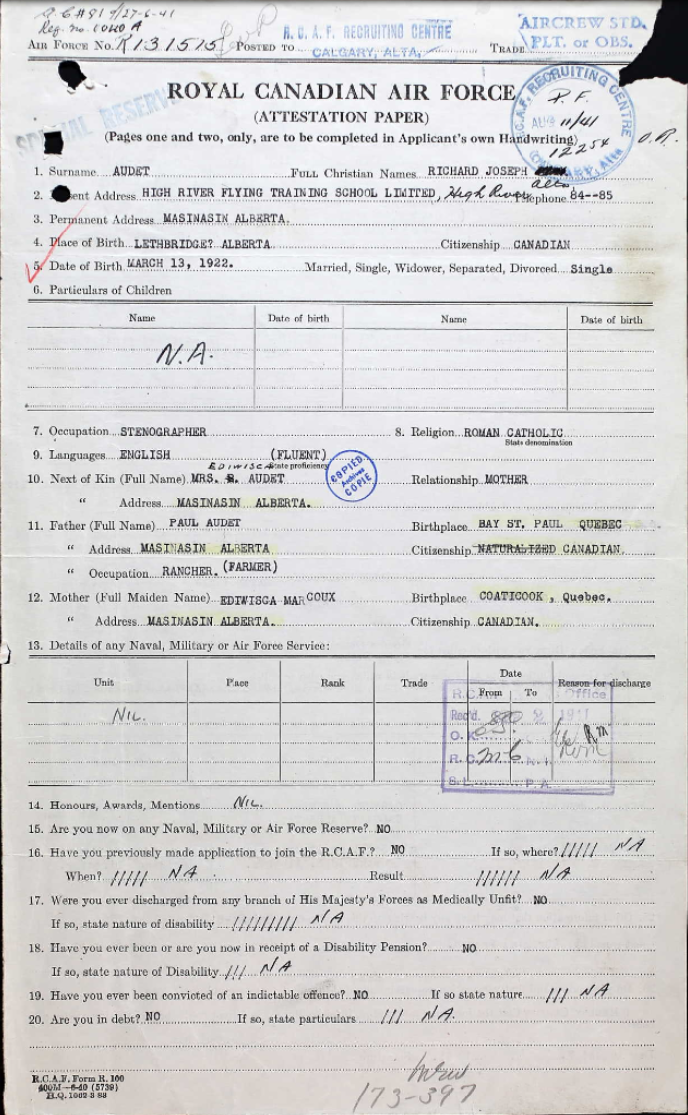 A.C. #81 9/27-6-41
Reg. no. 1040 A
AIR FORCE No. R131515 POSTED TO R.C.A.F. RECRUITING CENTRE CALGARY, ALTA. TRADE AIRCREW STD. PLT. or OBS.
SPECIAL RESERVE
ROYAL CANADIAN AIR FORCE
(ATTESTATION PAPER)
(Pages one and two, only, are to be completed in Applicant's own Handwriting)
R.C.A.F. RECRUITING CENTRE
P.F.
AUG 11/41
12254
CALGARY, Alta
1. Surname AUDET FULL Christian Names RICHARD JOSEPH
2. Present Address HIGH RIVER FLYING TRAINING SCHOOL LIMITED, High River Alta Telephone 84--85
3. Permanent Address MASINASIN ALBERTA.
4. Place of Birth LETHBRIDGE? ALBERTA Citizenship CANADIAN
5. Date of Birth MARCH 13, 1922. Married, Single, Widower, Separated, Divorced Single
6. Particulars of Children
Name Date of birth Name Date of birth
N.A.
7. Occupation STENOGRAPHER 8. Religion ROMAN CATHOLIC
State denomination
9. Languages ENGLISH (FLUENT)
EDIWISCA State proficiency
10. Next of Kin (Full Name) MRS. AUDET Relationship MOTHER
COPIED Archives COPIE
" Address MASINASIN ALBERTA.
11. Father (Full Name) PAUL AUDET Birthplace BAY ST. PAUL QUEBEC
" Address MASINASIN ALBERTA Citizenship NATURALIZED CANADIAN
" Occupation RANCHER. (FARMER)
12. Mother (Full Maiden Name) EDIWISCA MARCOUX Birthplace COATICOOK, Quebec.
" Address MASINASIN ALBERTA. Citizenship CANADIAN.
13. Details of any Naval, Military or Air Force Service:
Unit Place Rank Trade Date From To Reason for discharge
NIL.
R.C.A.F. Office
Rec'd. SEP 2 1941
O.K.
R.C. N.I.
S.L. P.A.
14. Honours, Awards, Mentions NIL.
15. Are you now on any Naval, Military or Air Force Reserve? NO
16. Have you previously made application to join the R.C.A.F.? NO If so, where? ///// NA
When? ///// NA Result ////// NA
17. Were you ever discharged from any branch of His Majesty's Forces as Medically Unfit? NO
If so, state nature of disability ///////// NA
18. Have you ever been or are you now in receipt of a Disability Pension? NO
If so, state nature of Disability /// NA
19. Have you ever been convicted of an indictable offence? NO If so state nature /// NA
20. Are you in debt? NO If so, state particulars /// NA.
R.C.A.F. Form R. 100
400M—6-40 (5739)
H.Q. 1062-3-88
173-397